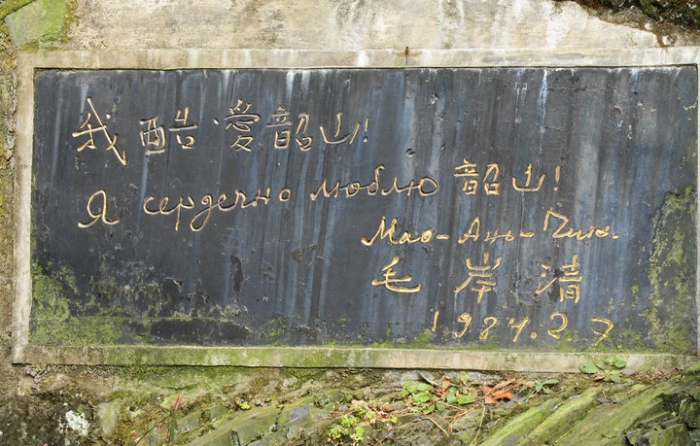 我酷爱韶山!
Я сердечно люблю 韶山!
Мао-Ань-Чин.
毛岸清
1984.2.7